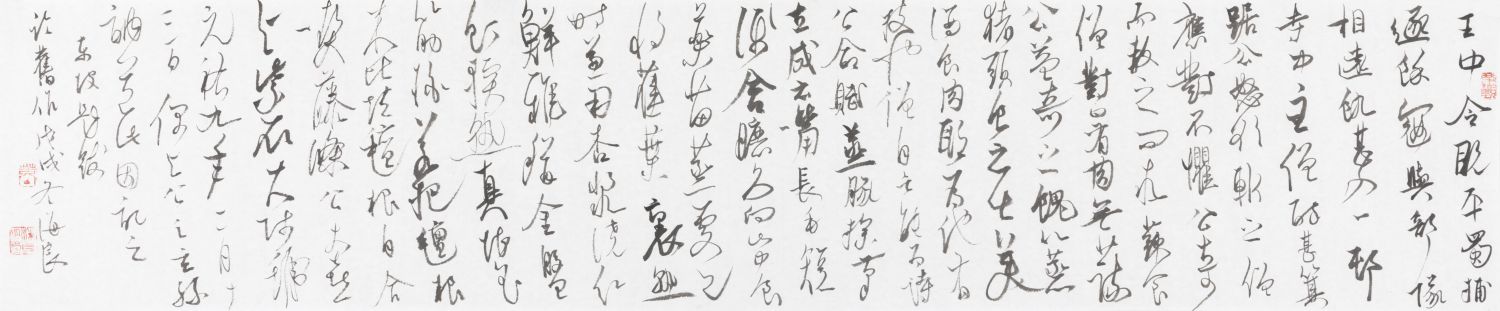 王中令既平蜀捕
逐餘寇與部隊
相遠飢甚入一邨
寺中主僧醉甚箕
踞公怒欲斬之僧
應對不懼公奇
而赦之问求蔬食
僧對曰有肉無蔬
公益奇之餽以蒸
猪頭食之甚美
酒食肉耶為他有
技也僧自言能為詩
公令賦蒸豚操筆
立成云嘴長毛短
淺含膘久向山中食
藥苗蒸處已
將蕉葉裹熟
時兼用杏漿澆紅
鮮雅稱金盤
飣軟熟真堪玉
筯挑若把氊根
來比並氊根自合
喫藤條公大喜
与紫衣大師號
元祐九年二月十
三日偶与公之玄孫
訥道此因記之
東坡題跋
舊作戊戌冬海良